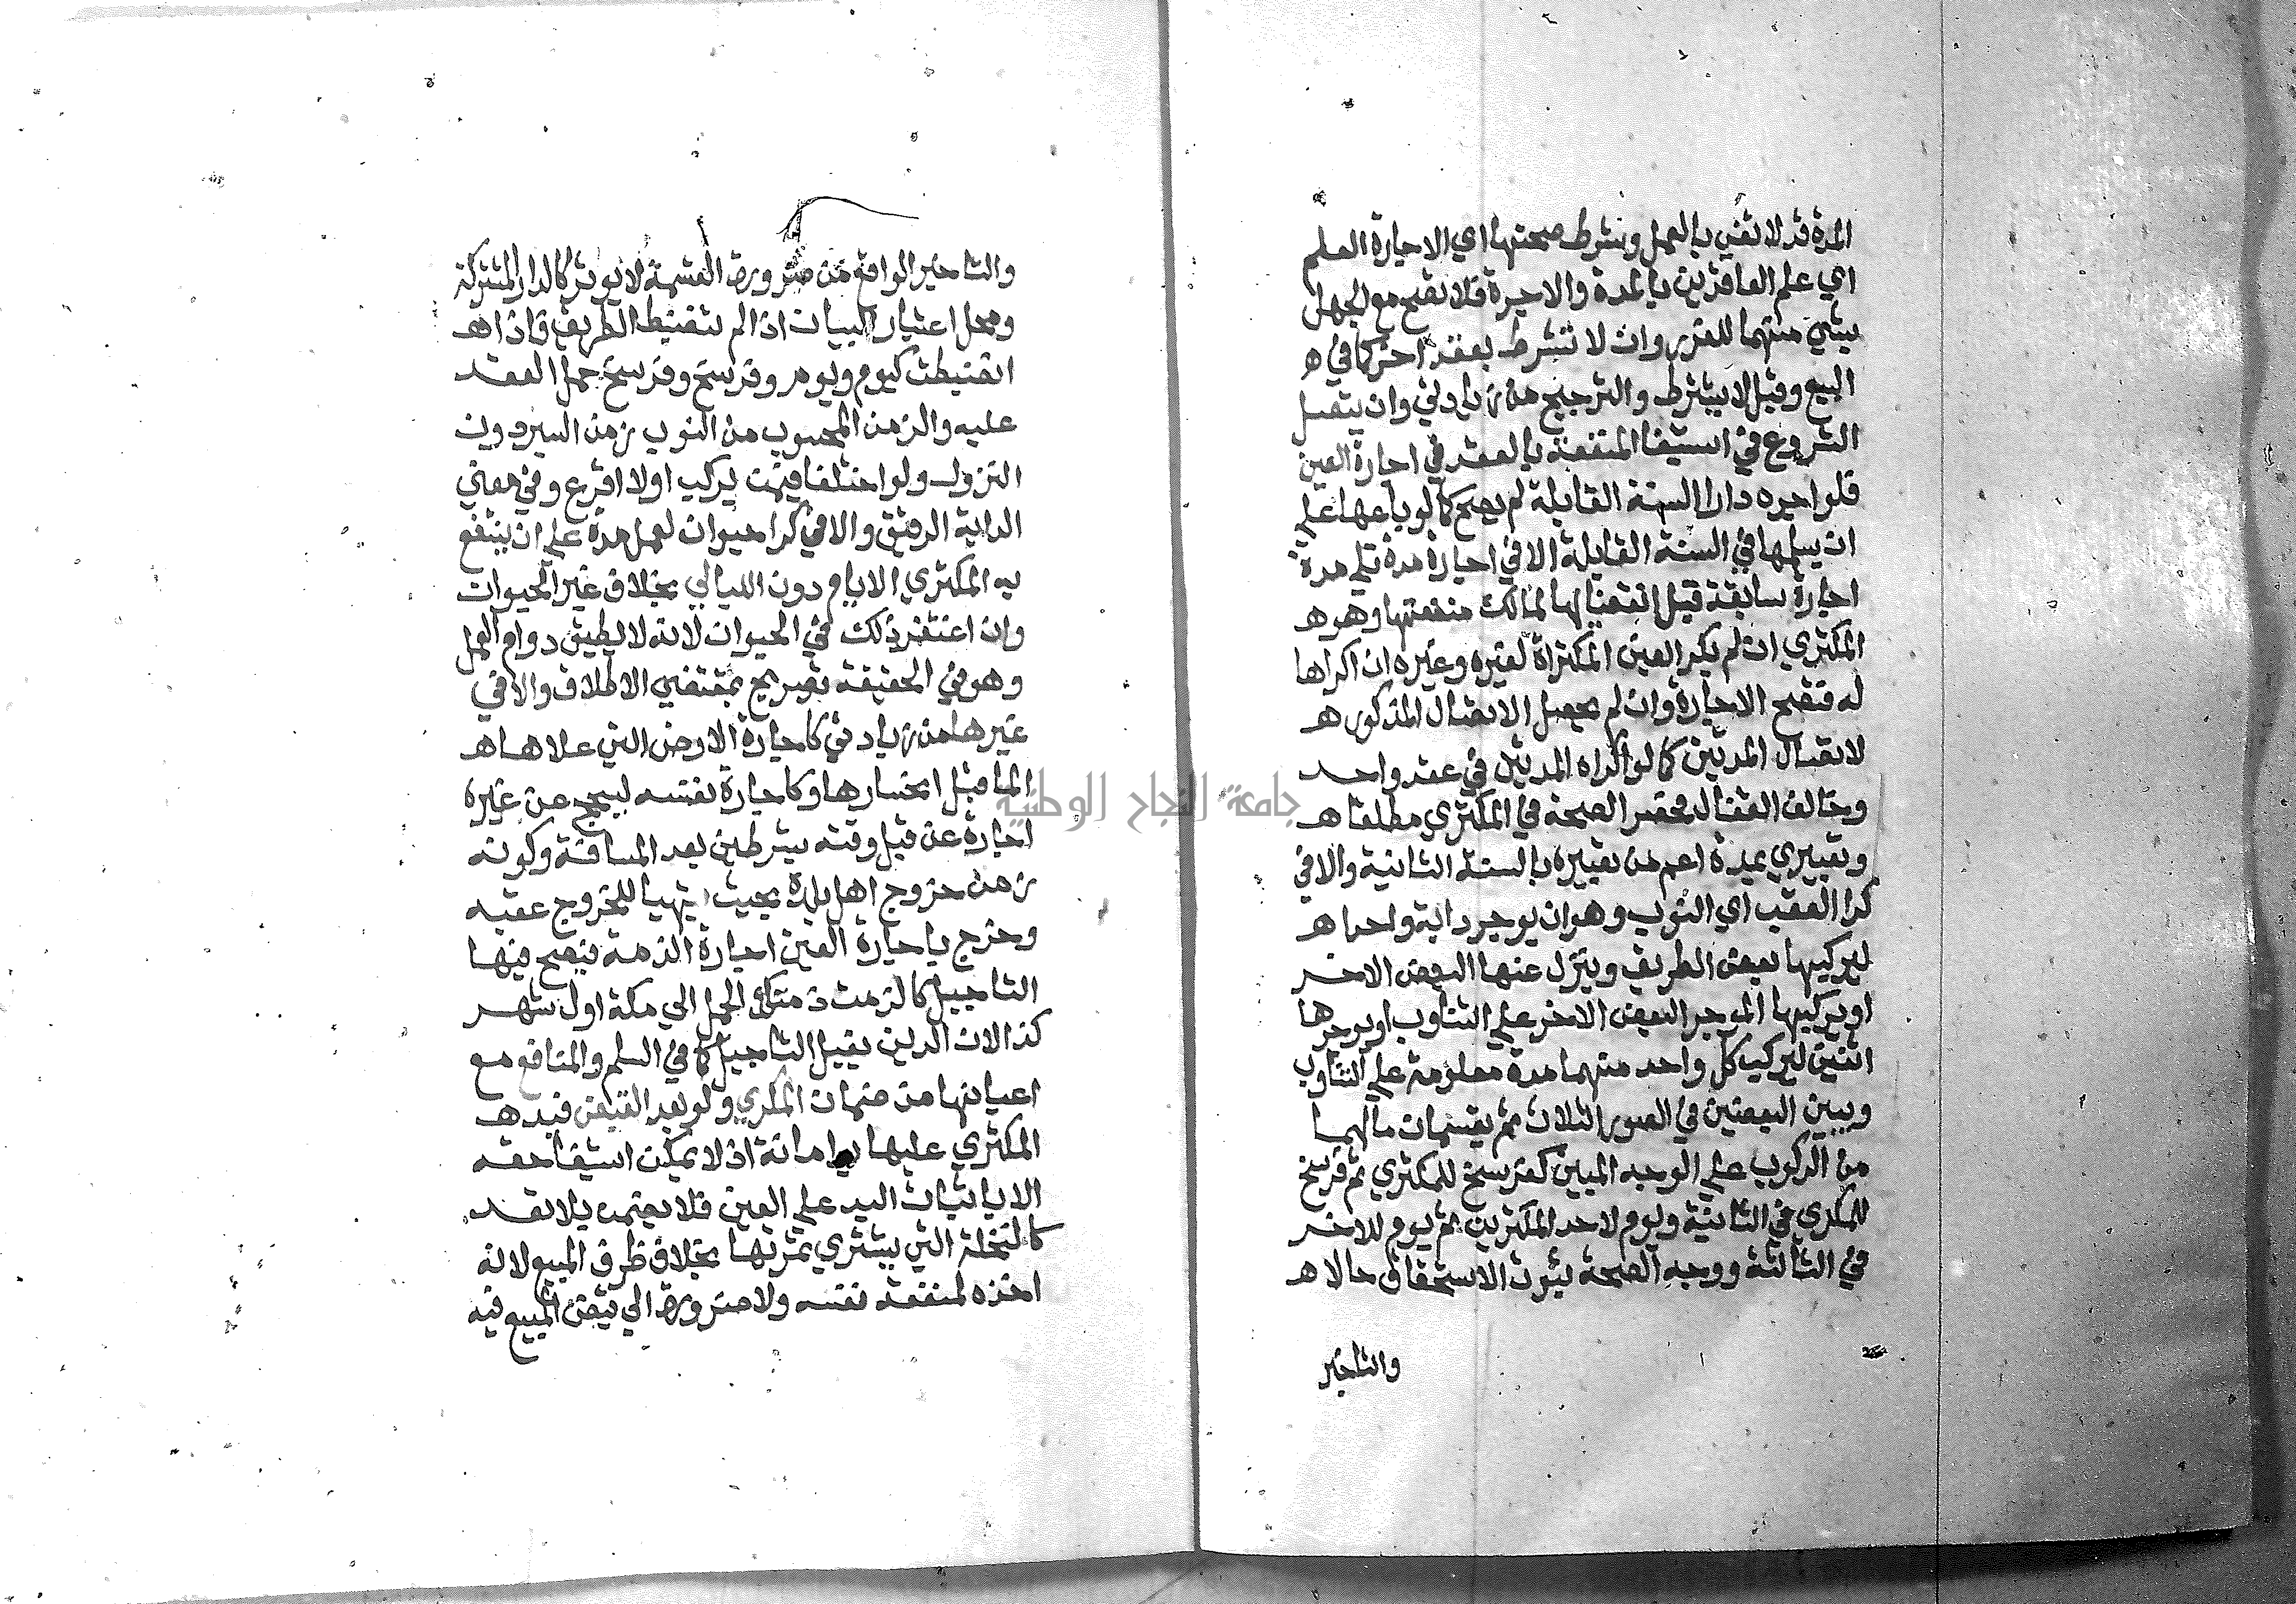 المدة قد لا تفي بالعمل وشرط صحتها اي الاجارة العلم
اي علم العاقدين بالمدة والاجرة فلا تصح مع الجهل
بشي منهما للغرر وان لا تشرط بعقد اخر كما في ه
البيع وقيل لا يشترط والترجيح من زيادتي وان يتصل
الشروع في استيفا المنفعة بالعقد في اجارة العين
فلو اجره دارا السنة القابلة لم يصح كما لو باعها علي
ان يسلمها في السنة القابلة الا في اجارة مدة تلي مدة
اجارة سابقة قبل انقضائها لمالك منفعتها وهو ه
المكتري ان لم يكر العين المكتراة لغيره وغيره ان اكراها
له فتصح الاجارة وان لم يحصل الاتصال المذكور ه
لاتصال المدتين كما لو اكراه المدتين في عقد واحد
وخالف القفال فحصر الصحة في المكتري مطلقا ه
وتعبيري بمدة اعم من تعبيره بالسنة الثانية والا في
كرا العقب اي النوب وهو ان يوجر دابة واحدا ه
ليركبها بعض الطريق وينزل عنها البعض الاخر
او يركبها الموجر البعض الاخر علي التناوب او يوجرها
اثنين ليركب كل واحد منهما مدة معلومة علي التناوب
ويبين البعضين في الصور الثلاث ثم يقتسمان مالهما
من الركوب علي الوجه المبين كفرسخ للمكتري ثم فرسخ
للمكري في الثانية ويوم لاحد المكترين ثم يوم للاخر
في الثالثة ووجه الصحة ثبوت الاستحقاق حالا ه
والتاخير
والتاخير الواقع من ضرورة القسمة لا يوثر كالدار المشتركة
ومحل اعتبار البيان اذا لم تنضبط الطريق فاذا ه
انضبطت كيوم ويوم وفرسخ وفرسخ حمل العقد
عليه والزمن المحسوب من النوب زمن السير دون
النزول ولو اختلفا فيمن يركب اولا اقرع وفي معني
الدابة الرقيق والا في كرا حيوان لعمل مدة علي ان ينتفع
به المكتري الايام دون الليالي بخلاف غير الحيوان
وان اغتفر ذلك في الحيوان لانه لا يطيق دوام العمل
وهو في الحقيقة تصريح بمقتضي الاطلاق والا في
غيرها من زيادتي كاجارة الارض التي علاها ه
الما قبل انحسارها وكاجارة نفسه ليحج عن غيره
اجارة عن قبل وقته بشرطين بعد المسافة وكونه
زمن خروج اهل بلده بحيث يتهيا للخروج عقبه
وخرج باجارة العين اجارة الذمة فيصح فيها
التاجيل كالزمت ذمتك الحمل الي مكة اول شهر
كذا لان الدين يقبل التاجيل كما في السلم والمنافع مع
اعيانها من ضمان المكري ولو بعد القبض فيد ه
المكتري عليها يد امانة اذ لا يمكن استيفا حقه
الا باثبات اليد علي العين فلا يضمن بلا تعد
كالنخلة التي يشتري ثمرتها بخلاف ظرف المبيع لانه
اخذه لمنفعة نفسه ولا ضرورة الي قبض المبيع فيه
جامعة النجاح الوطنية